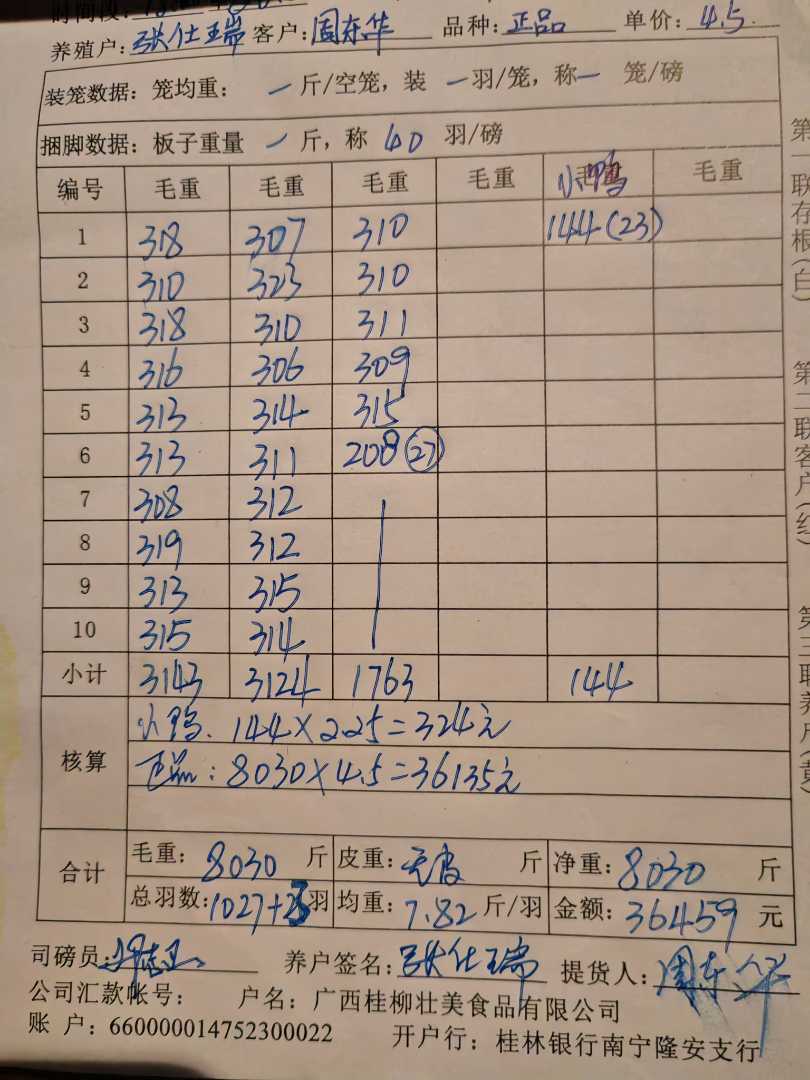 时间段:
养殖户: 张仕瑞 客户: 周东华 品种: 正品 单价: 4.5
装笼数据: 笼均重: 一 斤/空笼, 装 一 羽/笼, 称 一 笼/磅
捆脚数据: 板子重量 一 斤, 称 40 羽/磅
编号 毛重 毛重 毛重 毛重 小鸭 毛重
1 318 307 310 144(23)
2 310 323 310
3 318 310 311
4 316 306 309
5 313 314 315
6 313 311 208(27)
7 308 312
8 319 312
9 313 315
10 315 314
小计 3143 3124 1763 144
核算
小鸭. 144×2.25=324元
正品: 8030×4.5=36135元
合计
毛重: 8030 斤 皮重: 无皮 斤 净重: 8030 斤
总羽数: 1027+23羽 均重: 7.82 斤/羽 金额: 36459 元
司磅员: 养户签名: 张仕瑞 提货人: 周东华
公司汇款帐号: 户名: 广西桂柳壮美食品有限公司
账 户: 660000014752300022 开户行: 桂林银行南宁隆安支行
第一联存根(白) 第二联客户(红) 第三联养户(黄)